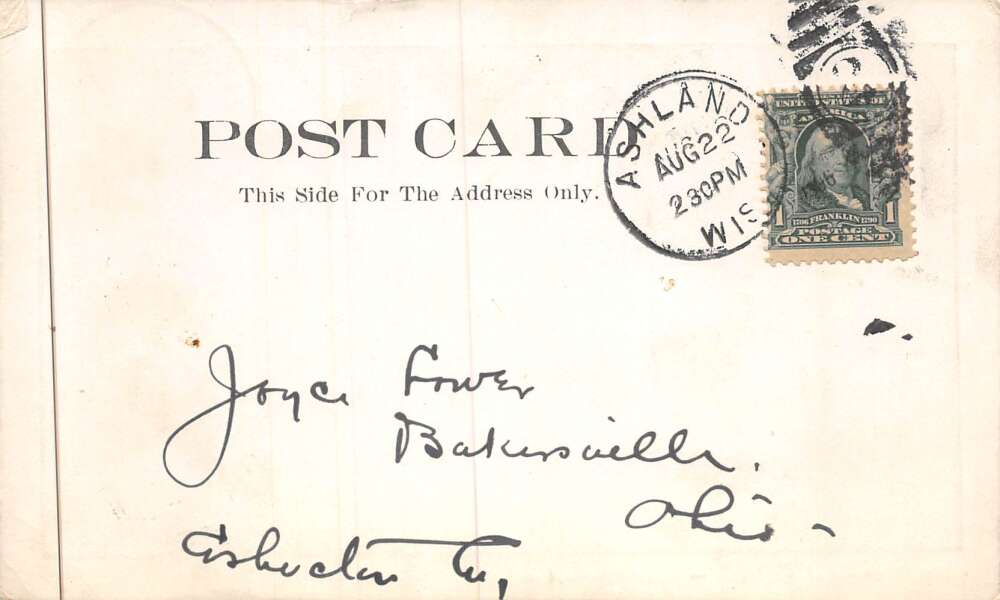 POST CARD
This Side For The Address Only.
ASHLAND
AUG 22
2 30 PM
WIS
UNITED STATES OF
AMERICA
1 1
1706 FRANKLIN 1790
POSTAGE
ONE CENT
Joyce Fower
Bakersville,
Ohio -
Coshocton Co,